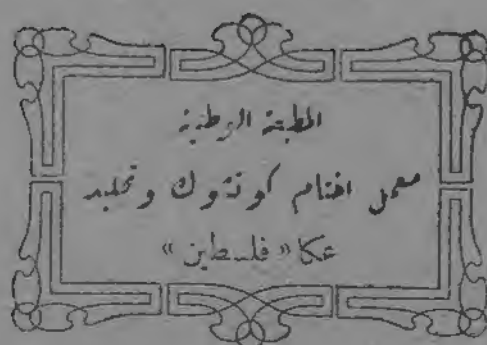 المطبعة الوطنية
معمل اختام كوتشوك وتجليد
عكا « فلسطين »